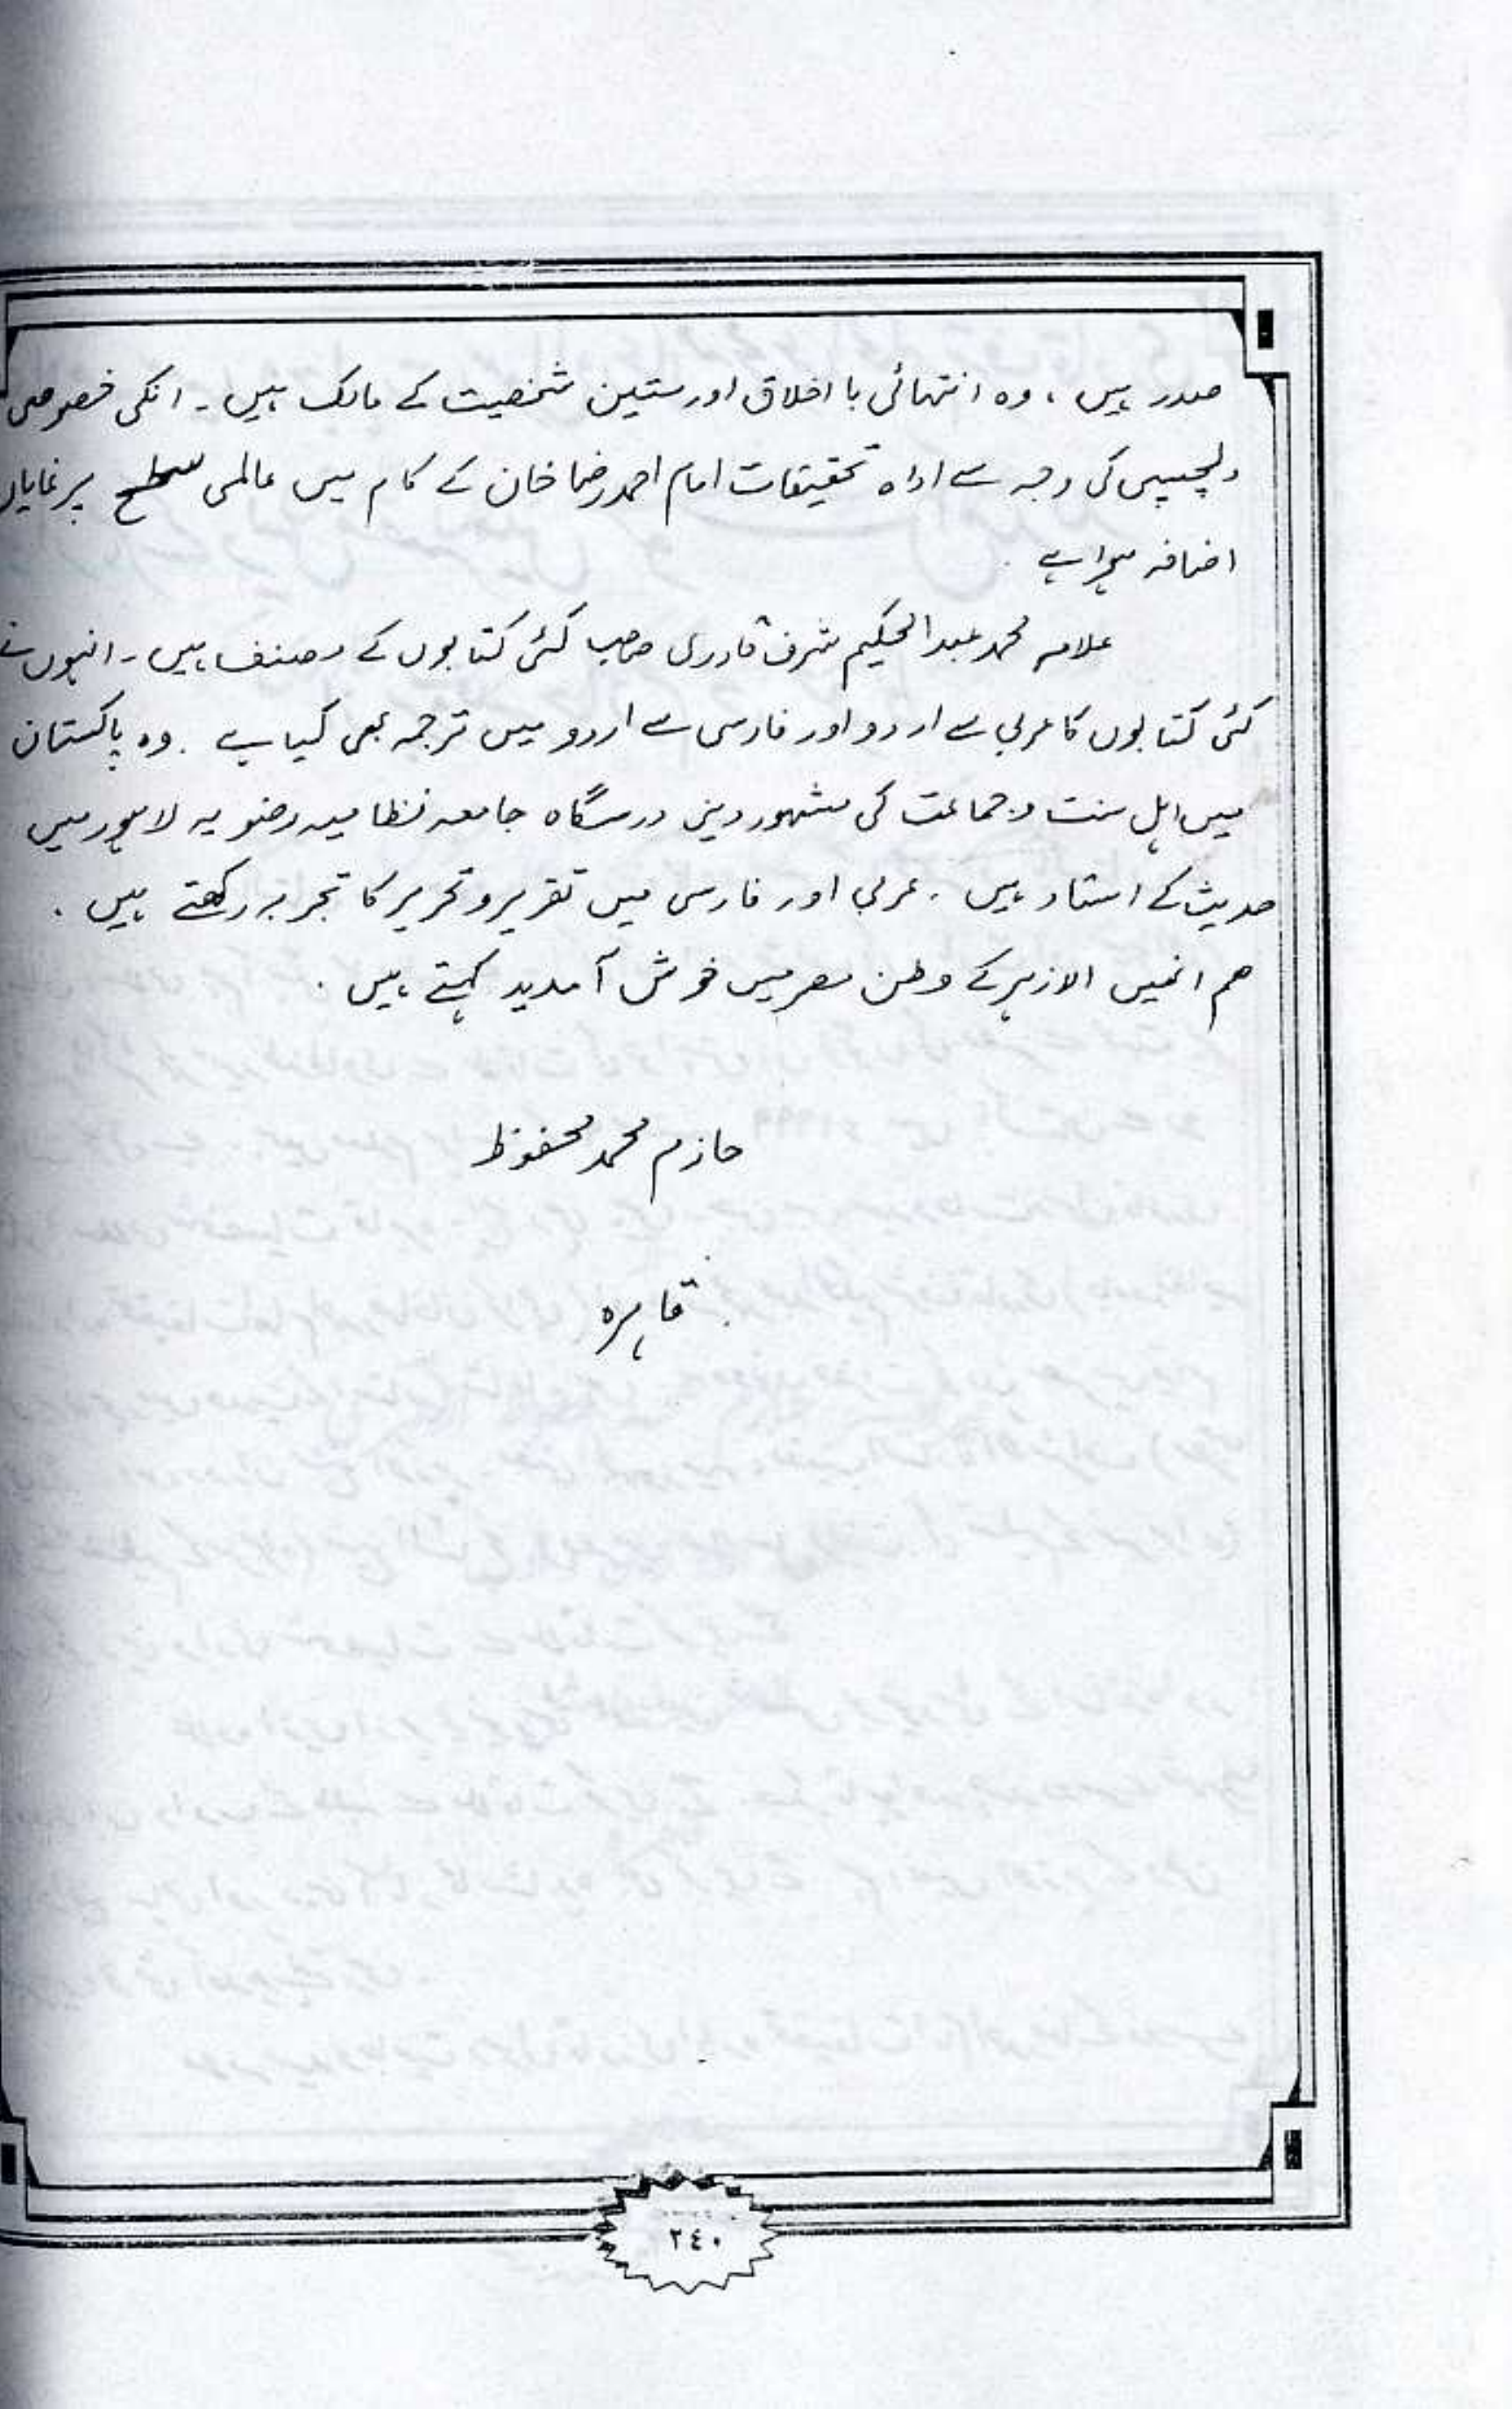 صدر ہیں ، وہ انتہائی با اخلاق اور متین شخصیت کے مالک ہیں ۔ انکی خصوصی
دلچسپی کی وجہ سے ادارہ تحقیقات امام احمد رضا خان کے کام میں عالمی سطح پر نمایاں
اضافہ ہوا ہے .
علامہ محمد عبد الحکیم شرف قادری صاحب کئی کتابوں کے مصنف ہیں ۔ انہوں نے
کئی کتابوں کا عربی سے اردو اور فارسی سے اردو میں ترجمہ بھی کیا ہے . وہ پاکستان
میں اہل سنت و جماعت کی مشہور دینی درسگاہ جامعہ نظامیہ رضویہ لاہور میں
حدیث کے استاد ہیں . عربی اور فارسی میں تقریر و تحریر کا تجربہ رکھتے ہیں .
ھم انھیں الازہر کے وطن مصر میں خوش آمدید کہتے ہیں .
حازم محمد محفوظ
قاہرہ
٢٤٠